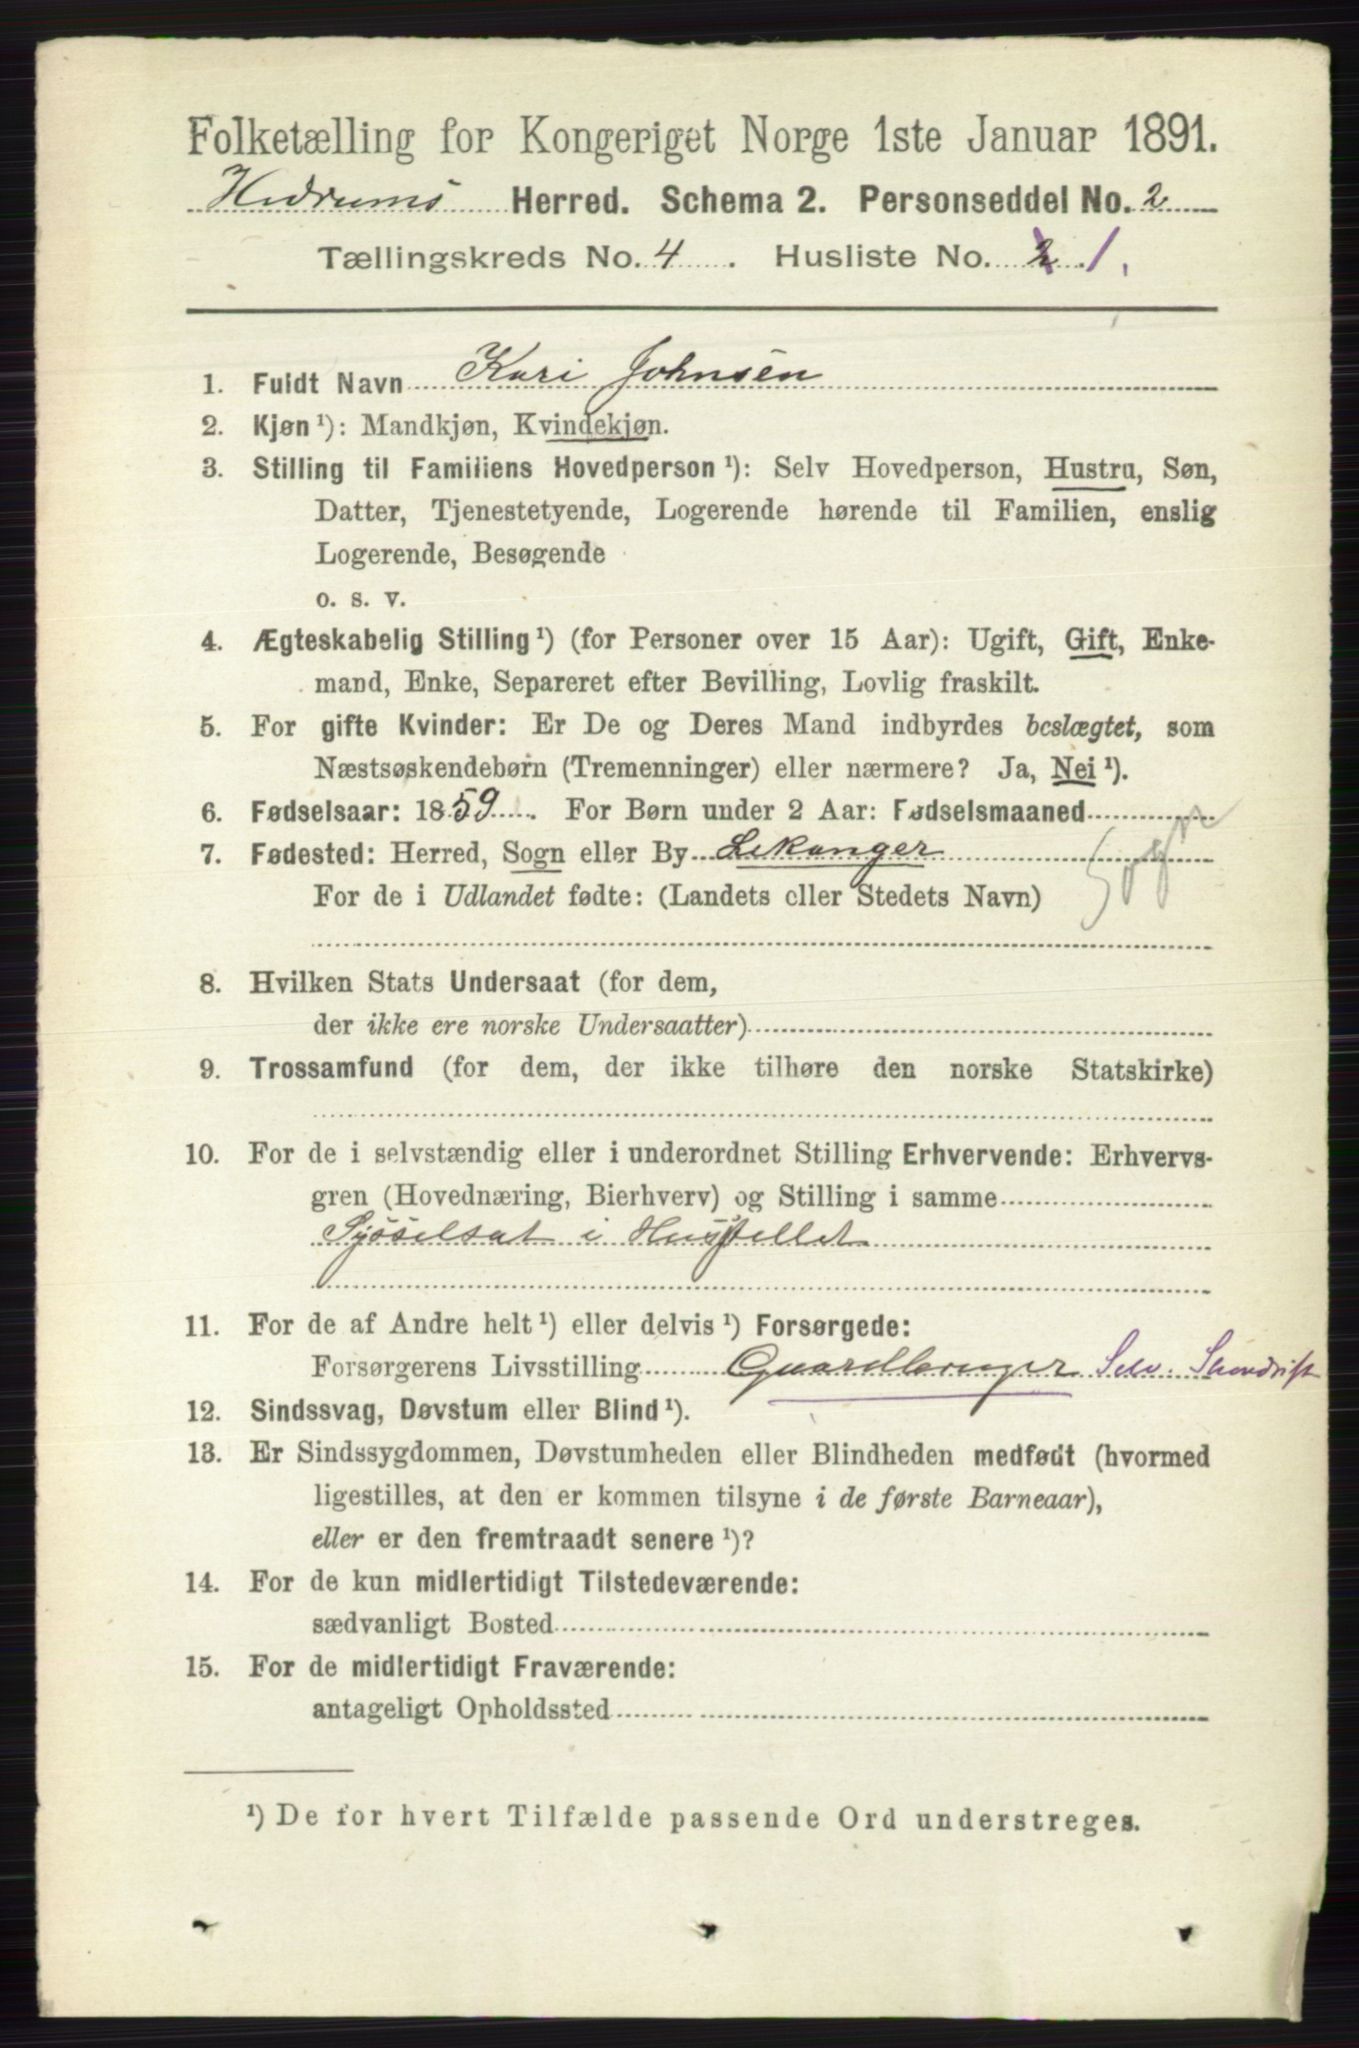 Folketælling for Kongeriget Norge 1ste Januar 1891.
Hedrums Herred. Schema 2. Personseddel No. 2
Tællingskreds No. 4. Husliste No. 2 1.
1. Fuldt Navn Kari Johnsen
2. Kjøn ¹): Mandkjøn, Kvindekjøn.
3. Stilling til Familiens Hovedperson ¹): Selv Hovedperson, Hustru, Søn,
Datter, Tjenestetyende, Logerende hørende til Familien, enslig
Logerende, Besøgende
o. s. v.
4. Ægteskabelig Stilling ¹) (for Personer over 15 Aar): Ugift, Gift, Enke-
mand, Enke, Separeret efter Bevilling, Lovlig fraskilt.
5. For gifte Kvinder: Er De og Deres Mand indbyrdes beslægtet, som
Næstsøskendebørn (Tremenninger) eller nærmere? Ja, Nei ¹).
6. Fødselsaar: 1859. For Børn under 2 Aar: Fødselsmaaned
7. Fødested: Herred, Sogn eller By Lekanger Sogn
For de i Udlandet fødte: (Landets eller Stedets Navn)
8. Hvilken Stats Undersaat (for dem,
der ikke ere norske Undersaatter)
9. Trossamfund (for dem, der ikke tilhøre den norske Statskirke)
10. For de i selvstændig eller i underordnet Stilling Erhvervende: Erhvervs-
gren (Hovednæring, Bierhverv) og Stilling i samme
Sysselsat i Husstellet
11. For de af Andre helt ¹) eller delvis ¹) Forsørgede:
Forsørgerens Livsstilling Gaardbruger Selv.
12. Sindssvag, Døvstum eller Blind ¹).
13. Er Sindssygdommen, Døvstumheden eller Blindheden medfødt (hvormed
ligestilles, at den er kommen tilsyne i de første Barneaar),
eller er den fremtraadt senere ¹)?
14. For de kun midlertidigt Tilstedeværende:
sædvanligt Bosted
15. For de midlertidigt Fraværende:
antageligt Opholdssted
¹) De for hvert Tilfælde passende Ord understreges.